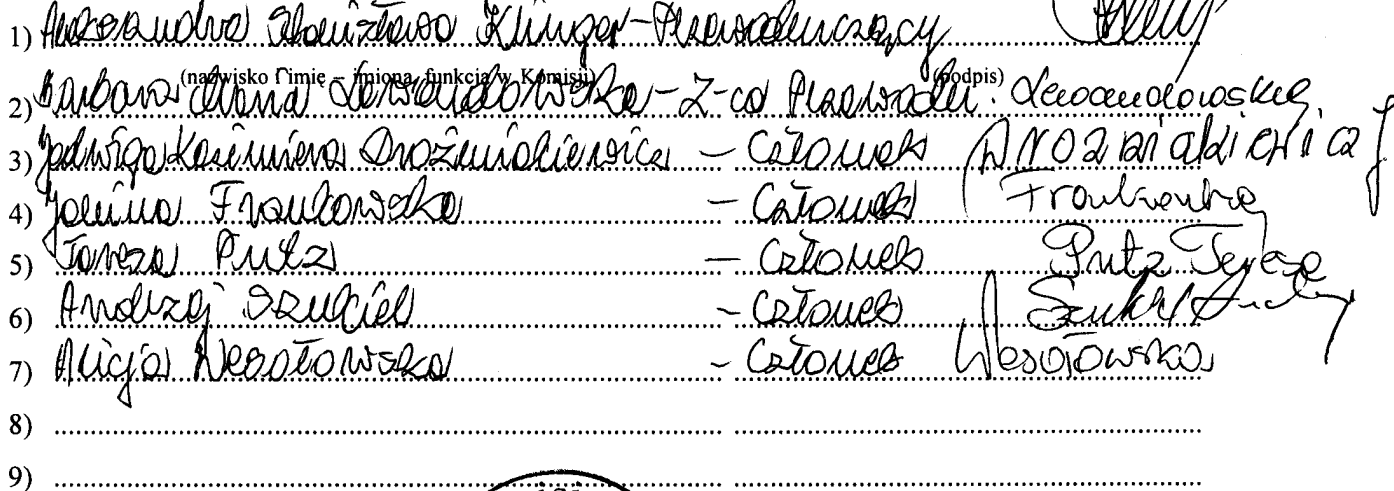 1) Aleksandra Stanisława Klinger - Przewodniczący
(nazwisko i imię – imiona, funkcja w Komisji) (podpis)
2) Barbara Maria Lewandowska - Z-ca Przewodn. Lewandowska
3) Jadwiga Kazimiera Droźniakiewicz - Członek Droźniakiewicz J
4) Janina Frankowska - Członek Frankowska
5) Teresa Putz - Członek Putz Teresa
6) Andrzej Szukiel - Członek Szukiel
7) Alicja Wesołowska - Członek Wesołowska
8)
9)